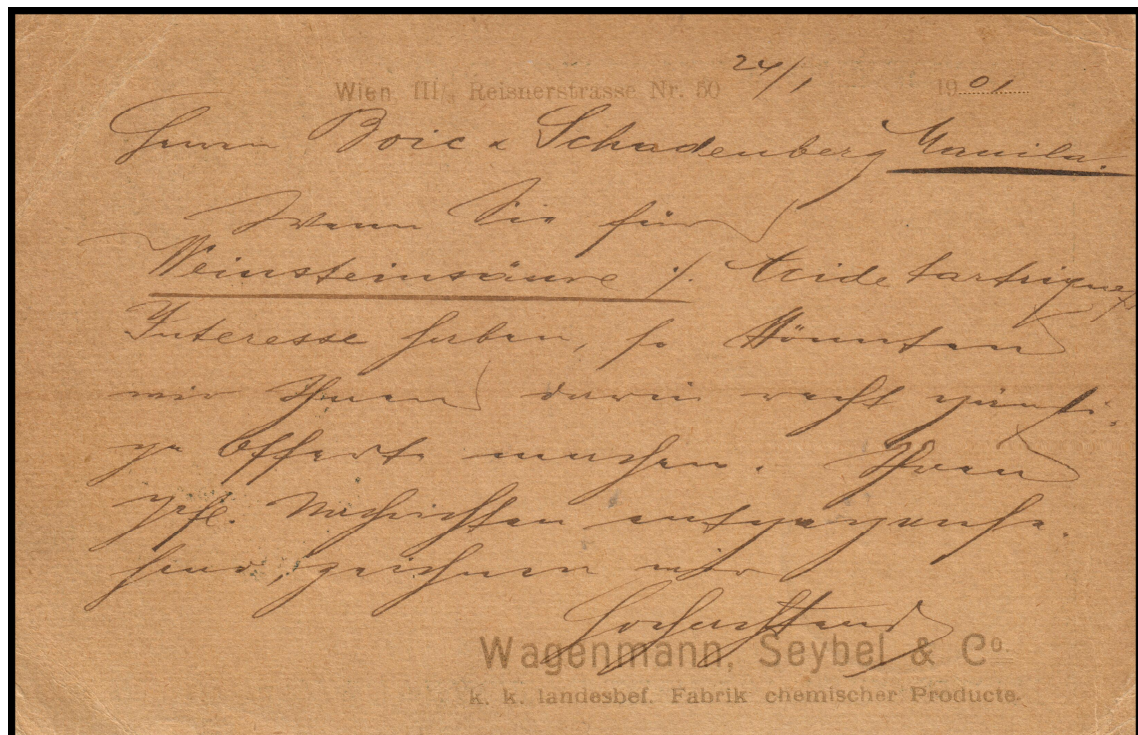 Wien, III/3 Reisnerstrasse Nr. 50 24/1 1901
Herren Boie & Schadenberg Manila.
Wenn Sie für
Weinsteinsäure ./. Acide tartrique
Interesse haben, so könnten
wir Ihnen darin recht günsti-
ge Offerte machen. Ihren
gefl. Nachrichten entgegense-
hend, zeichnen wir
Hochachtend
Wagenmann, Seybel & Co.
k. k. landesbef. Fabrik chemischer Producte.